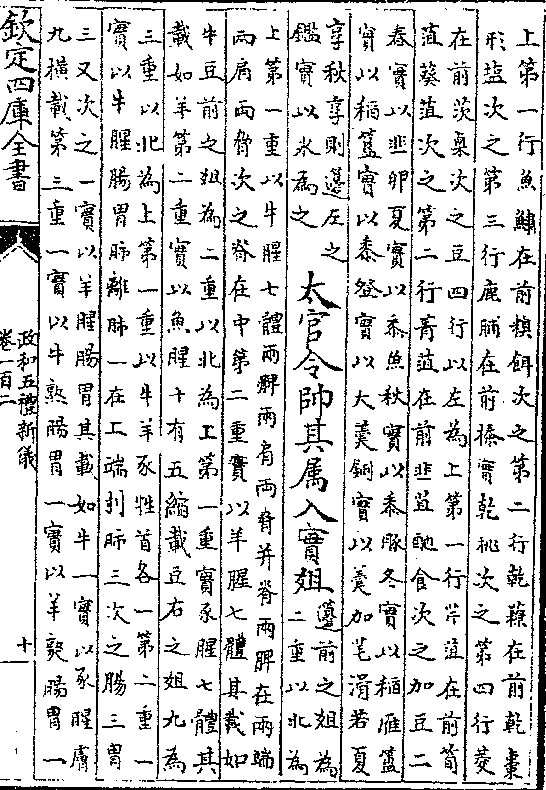 上第一行魚鱐在前糗餌次之第二行乾䕩在前乾棗
形塩次之第三行鹿脯在前榛實乾桃次之第四行菱
在前茨㮚次之豆四行以左為上第一行芹菹在前筍
菹葵菹次之第二行菁菹在前韭菹酏食次之加豆二
春實以韭卵夏實以黍魚秋實以黍豚冬實以稻雁簠
實以稻簋實以黍登實以大羮鉶實以羮加芼滑若夏
享秋享則籩左之
鑑實以氷為之
太官令帥其属入實俎
籩前之俎為
二重以北為
上第一重以牛腥七體兩髀兩肩兩脅并脊兩髀在兩端
兩肩兩脅次之脊在中第二重實以羊腥七體其載如
牛豆前之俎為二重以北為上第一重實豕腥七體其
載如羊第二重實以魚腥十有五縮載豆右之俎九為
三重以北為上第一重以牛羊豕牲首各一第二重一
實以牛腥腸胃肺離肺一在上端刌肺三次之腸三胃
三又次之一實以羊腥腸胃其載如牛一實以豕腥膚
九横載第三重一實以牛熟腸胃一實以羊熟腸胃一
欽定四庫全書
政和五禮新儀
卷一百二
十